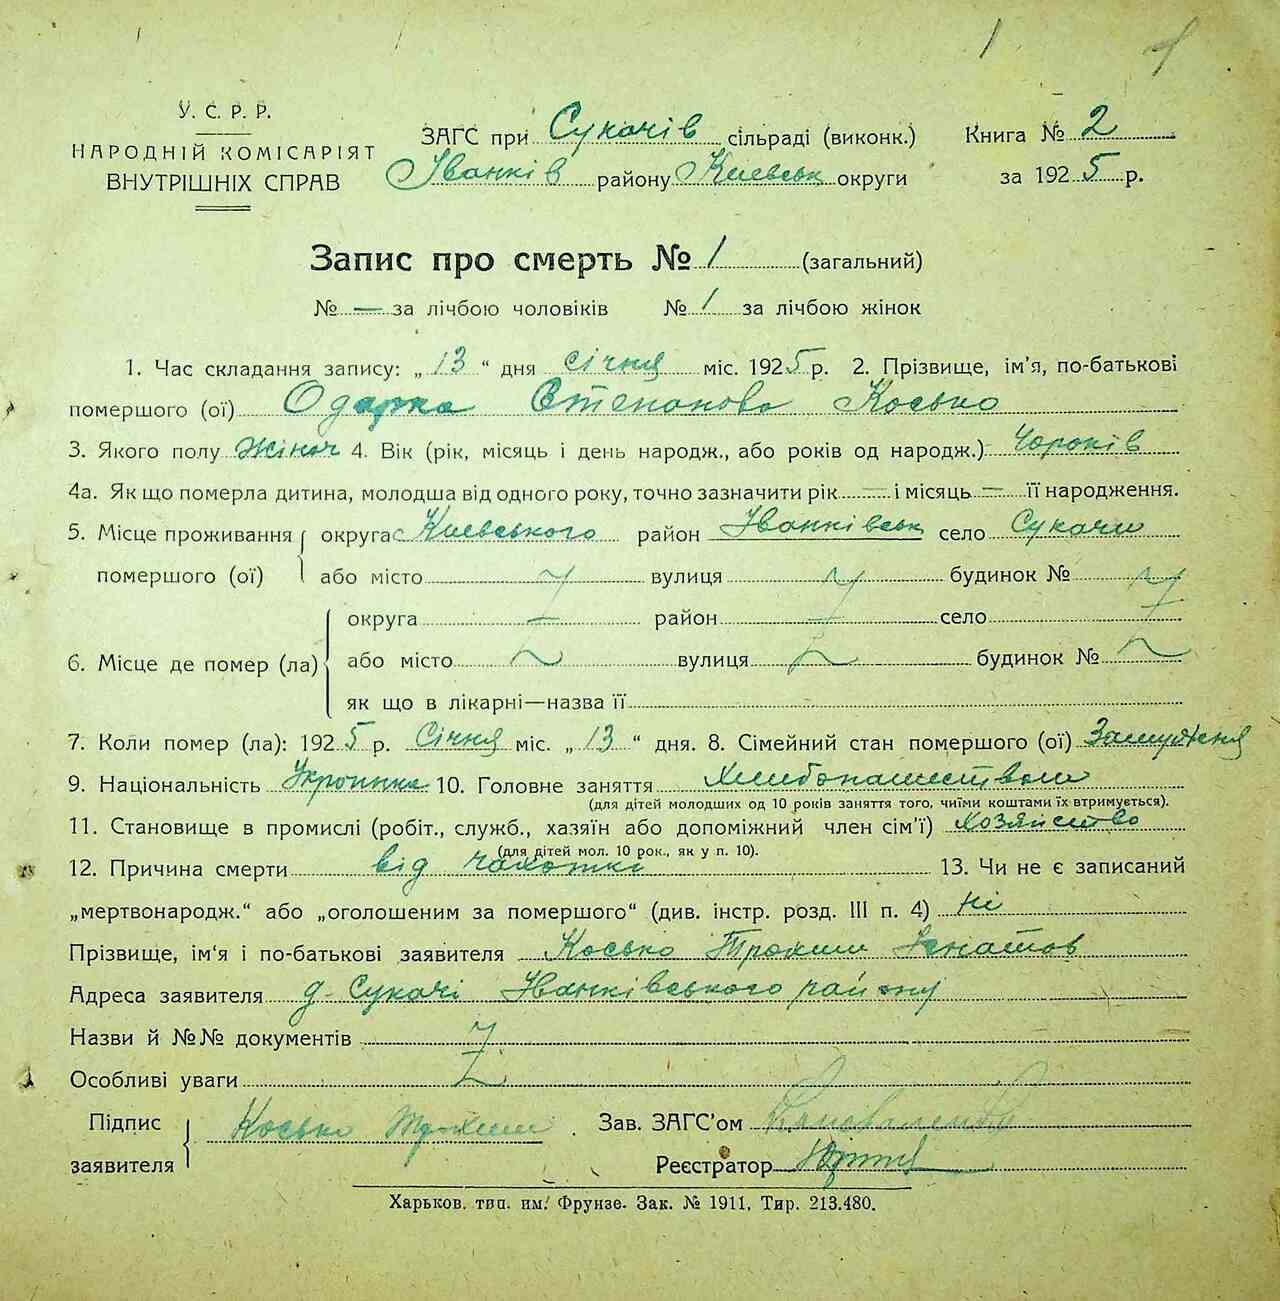 У. С. Р. Р.
НАРОДНІЙ КОМІСАРІЯТ
ВНУТРІШНІХ СПРАВ
ЗАГС при Сукачів сільраді (виконк.)
Іванків району Киевськ округи
Книга № 2
за 1925 р.
Запис про смерть № 1 (загальний)
№ — за лічбою чоловіків № 1 за лічбою жінок
1. Час складання запису: „13“ дня січня міс. 1925 р. 2. Прізвище, ім'я, по-батькові
помершого (ої) Одарка Степанова Косько
3. Якого полу жіноч 4. Вік (рік, місяць і день народж., або років од народж.)
4а. Як що померла дитина, молодша від одного року, точно зазначити рік — і місяць — її народження.
5. Місце проживання округа Киевського район Іванківськ село Сукачи
помершого (ої) або місто вулиця будинок №
округа район село
6. Місце де помер (ла) або місто вулиця будинок №
як що в лікарні—назва її
7. Коли помер (ла): 1925 р. Січня міс. „13“ дня. 8. Сімейний стан помершого (ої) Замужня
9. Національність Украинка 10. Головне заняття
(для дітей молодших од 10 років заняття того, чиїми коштами їх втримується).
11. Становище в промислі (робіт., служб., хазяїн або допоміжний член сім'ї) хозяйство
(для дітей мол. 10 рок., як у п. 10).
12. Причина смерти від чахотки 13. Чи не є записаний
„мертвонародж.“ або „оголошеним за помершого“ (див. інстр. розд. III п. 4) ні
Прізвище, ім'я і по-батькові заявителя Косько Трохим Ігнатов
Адреса заявителя д. Сукачі Іванківського району
Назви й №№ документів
Особливі уваги
Підпис
заявителя
Косько Трохим
Зав. ЗАГС'ом
Реєстратор
Харьков. тип. им. Фрунзе. Зак. № 1911. Тир. 213.480.